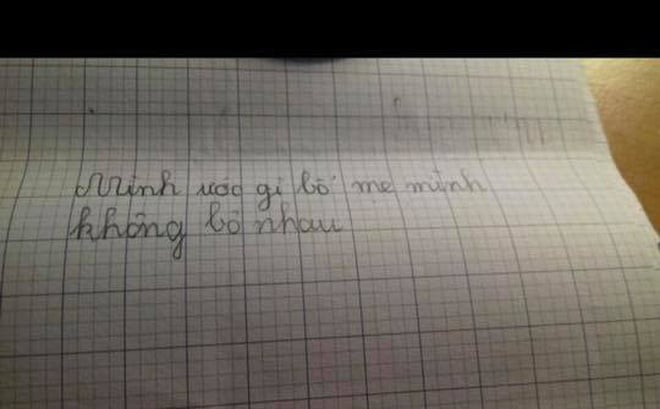 Mình ước gì bố mẹ mình
không bỏ nhau